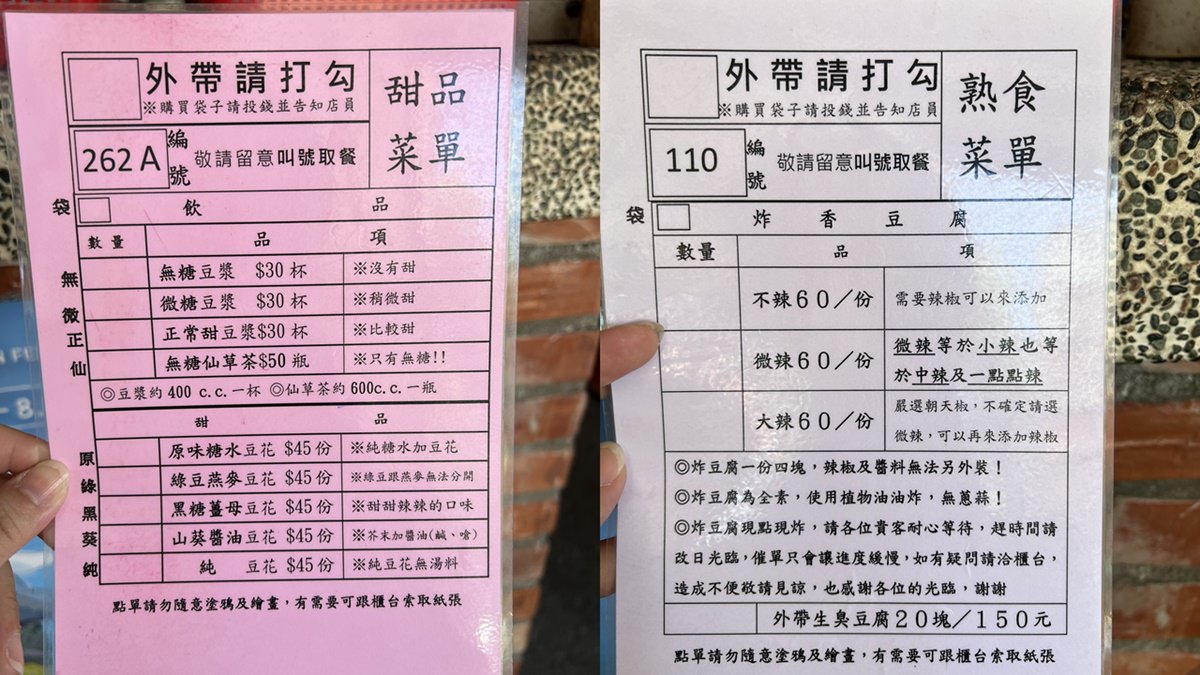 外帶請打勾
※購買袋子請投錢並告知店員
甜品
菜單
262A
編號
敬請留意叫號取餐
袋
飲品
數量 品項
無 無糖豆漿 $30 杯 ※沒有甜
微 微糖豆漿 $30 杯 ※稍微甜
正 正常甜豆漿$30杯 ※比較甜
仙 無糖仙草茶$50 瓶 ※只有無糖!!
◎豆漿約 400 c.c.一杯 ◎仙草茶約 600c.c.一瓶
甜品
原 原味糖水豆花 $45份 ※純糖水加豆花
綠 綠豆燕麥豆花 $45份 ※綠豆跟燕麥無法分開
黑 黑糖薑母豆花 $45份 ※甜甜辣辣的口味
葵 山葵醬油豆花 $45份 ※芥末加醬油(鹹、嗆)
純 純 豆花 $45份 ※純豆花無湯料
點單請勿隨意塗鴉及繪畫，有需要可跟櫃台索取紙張
外帶請打勾
※購買袋子請投錢並告知店員
熟食
菜單
110
編號
敬請留意叫號取餐
袋
炸香豆腐
數量 品項
不辣６０／份 需要辣椒可以來添加
微辣６０／份 微辣等於小辣也等
於中辣及一點點辣
大辣６０／份 嚴選朝天椒，不確定請選
微辣，可以再來添加辣椒
◎炸豆腐一份四塊，辣椒及醬料無法另外裝！
◎炸豆腐為全素，使用植物油油炸，無蔥蒜！
◎炸豆腐現點現炸，請各位貴客耐心等待，趕時間請
改日光臨，催單只會讓進度緩慢，如有疑問請洽櫃台，
造成不便敬請見諒，也感謝各位的光臨，謝謝
外帶生臭豆腐２０塊／１５０元
點單請勿隨意塗鴉及繪畫，有需要可跟櫃台索取紙張